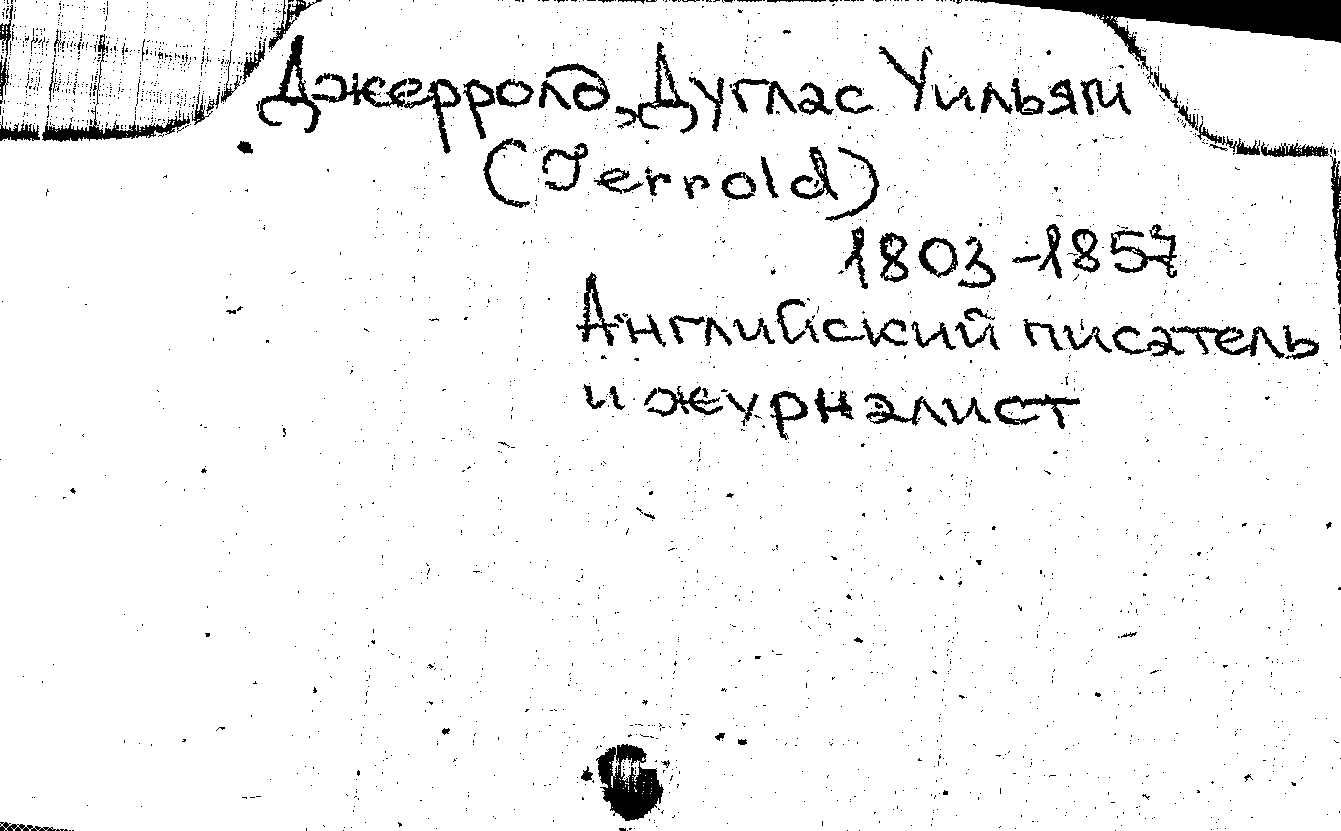 Джерролд, Дуглас Уильям
(Jerrold)
1803-1857
Английский писатель
и журналист